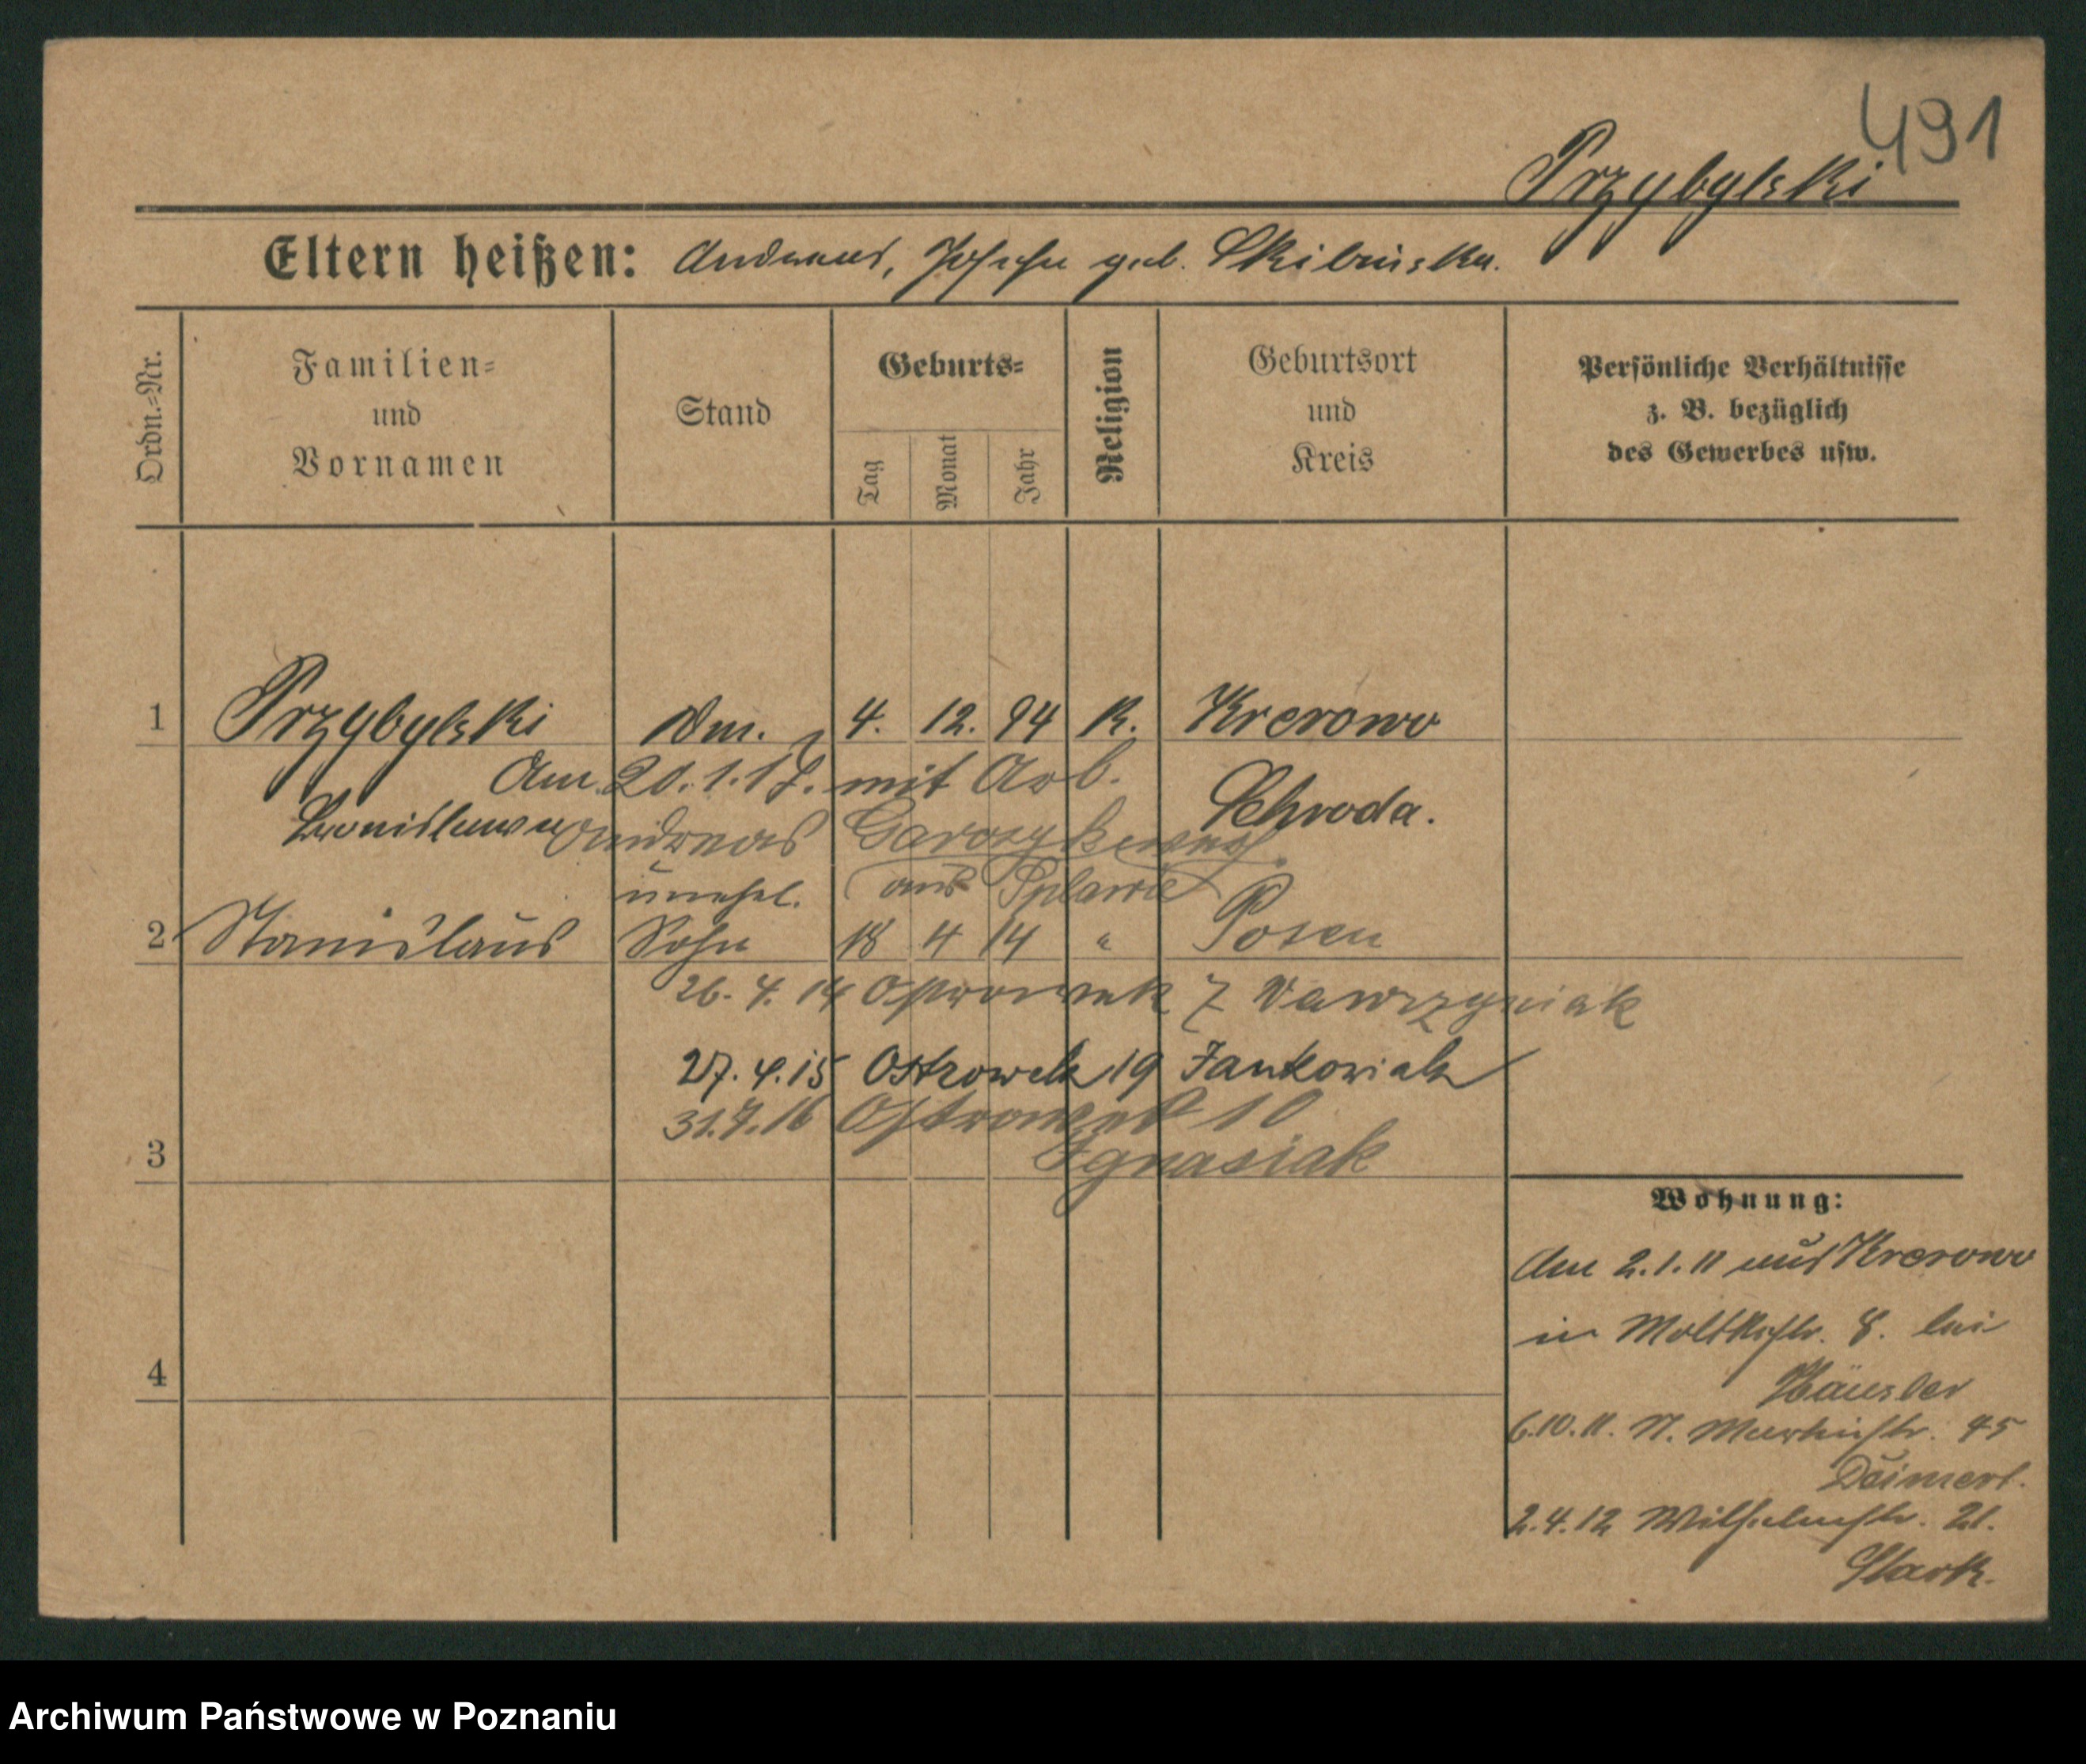 491
Przybylski
Eltern heißen: Andreas, Josefa geb. Skibinska.
Ordn.=Nr.
Familien=
und
Vornamen
Stand
Geburts=
Tag
Monat
Jahr
Religion
Geburtsort
und
Kreis
Persönliche Verhältnisse
z. B. bezüglich
des Gewerbes usw.
1 Przybylski Dm. 4. 12. 94 K. Krerowo
Am 20.1.17. mit Arb.
Schroda.
Bronislawa
Andreas
unehel. aus Splawie
2 Stanislaus Sohn 18 4 14 " Posen
26. 4. 14 Ostrowek 7 Wawrzyniak
27. 4. 15 Ostrowek 19 Jankowiak
31.7.16 Ostrowek 10
Ignasiak
3
Wohnung:
Am 2.1.11 aus Krerowo
in Moltkestr. 8. bei
Häusler
4
6.10.11. N. Martinstr. 45
2.4.12 Wilhelmstr. 21.
Stark.
Archiwum Państwowe w Poznaniu